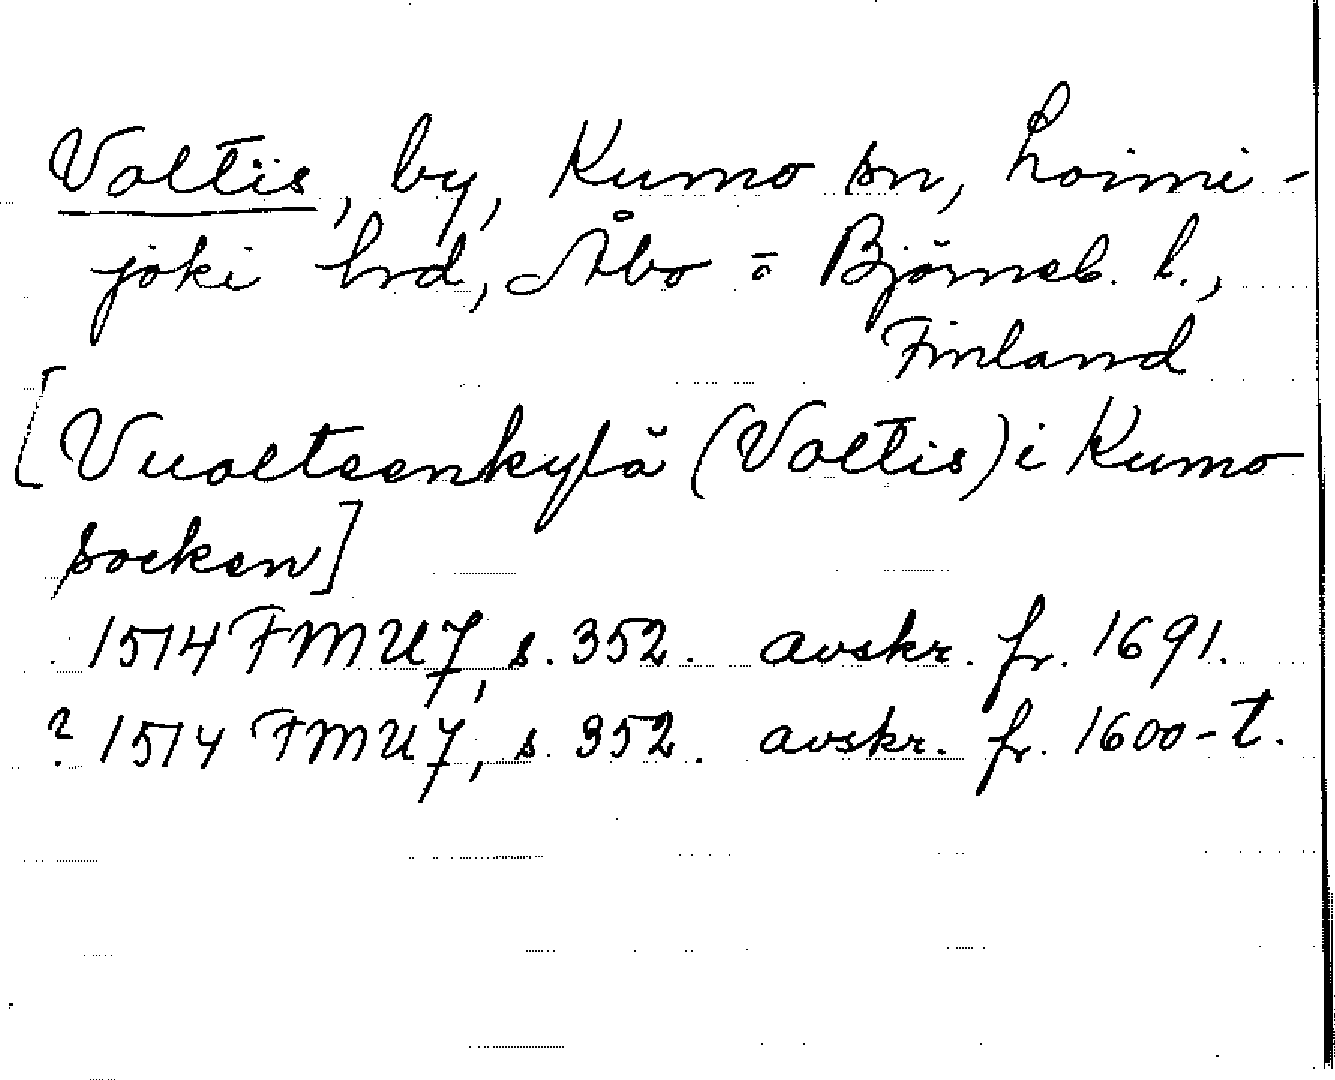 Voltiis, by, Kumo sn, Loimi-
joki hrd, Åbo o Björneb. l.,
Finland
[Vuolteenkylä (Voltis) i Kumo
socken]
1514 FMU 7, s. 352. avskr. fr. 1691.
? 1514 FMU 7, s. 352. avskr. fr. 1600-t.